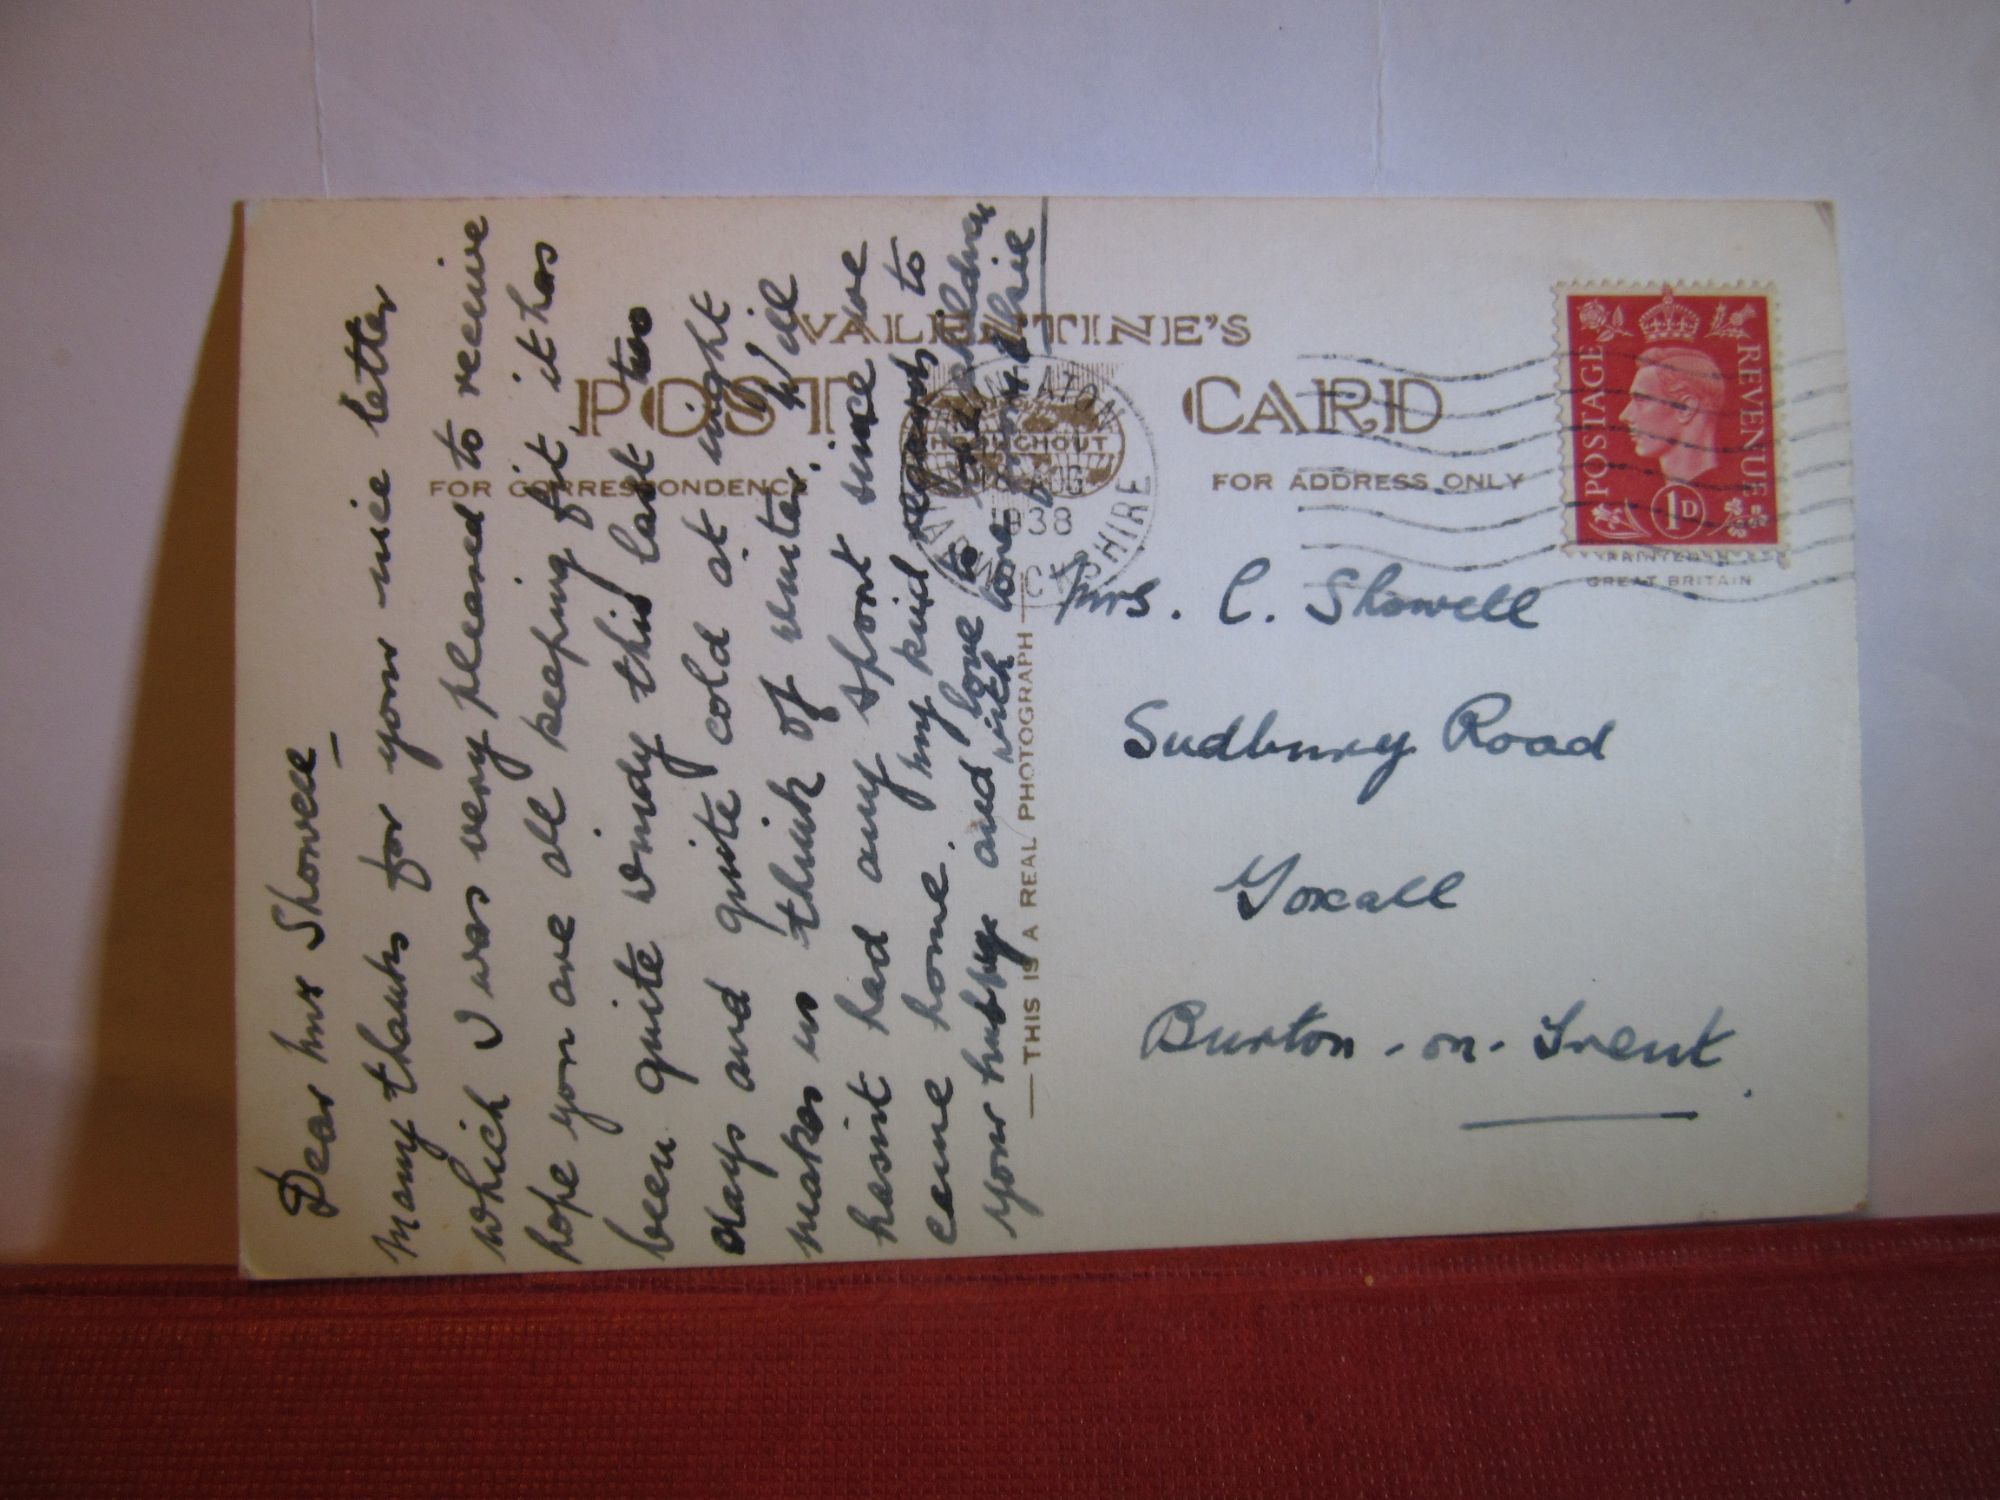 VALENTINE'S
POST CARD
FOR CORRESPONDENCE
FOR ADDRESS ONLY
THROUGHOUT
AUG
1938
WARWICKSHIRE
POSTAGE
REVENUE
1D
PRINTED IN
GREAT BRITAIN
THIS IS A REAL PHOTOGRAPH
Dear Mrs Showell
Many thanks for your nice letter
which I was very pleased to receive
hope you are all keeping fit, it has
been quite windy this last two
days and quite cold at night
makes us think of winter. Will
hasnt had any sport since we
came home. My kind regards to
your hubby and love to children
with love from
Mrs. C. Showell
Sudbury Road
Yoxall
Burton-on-Trent.